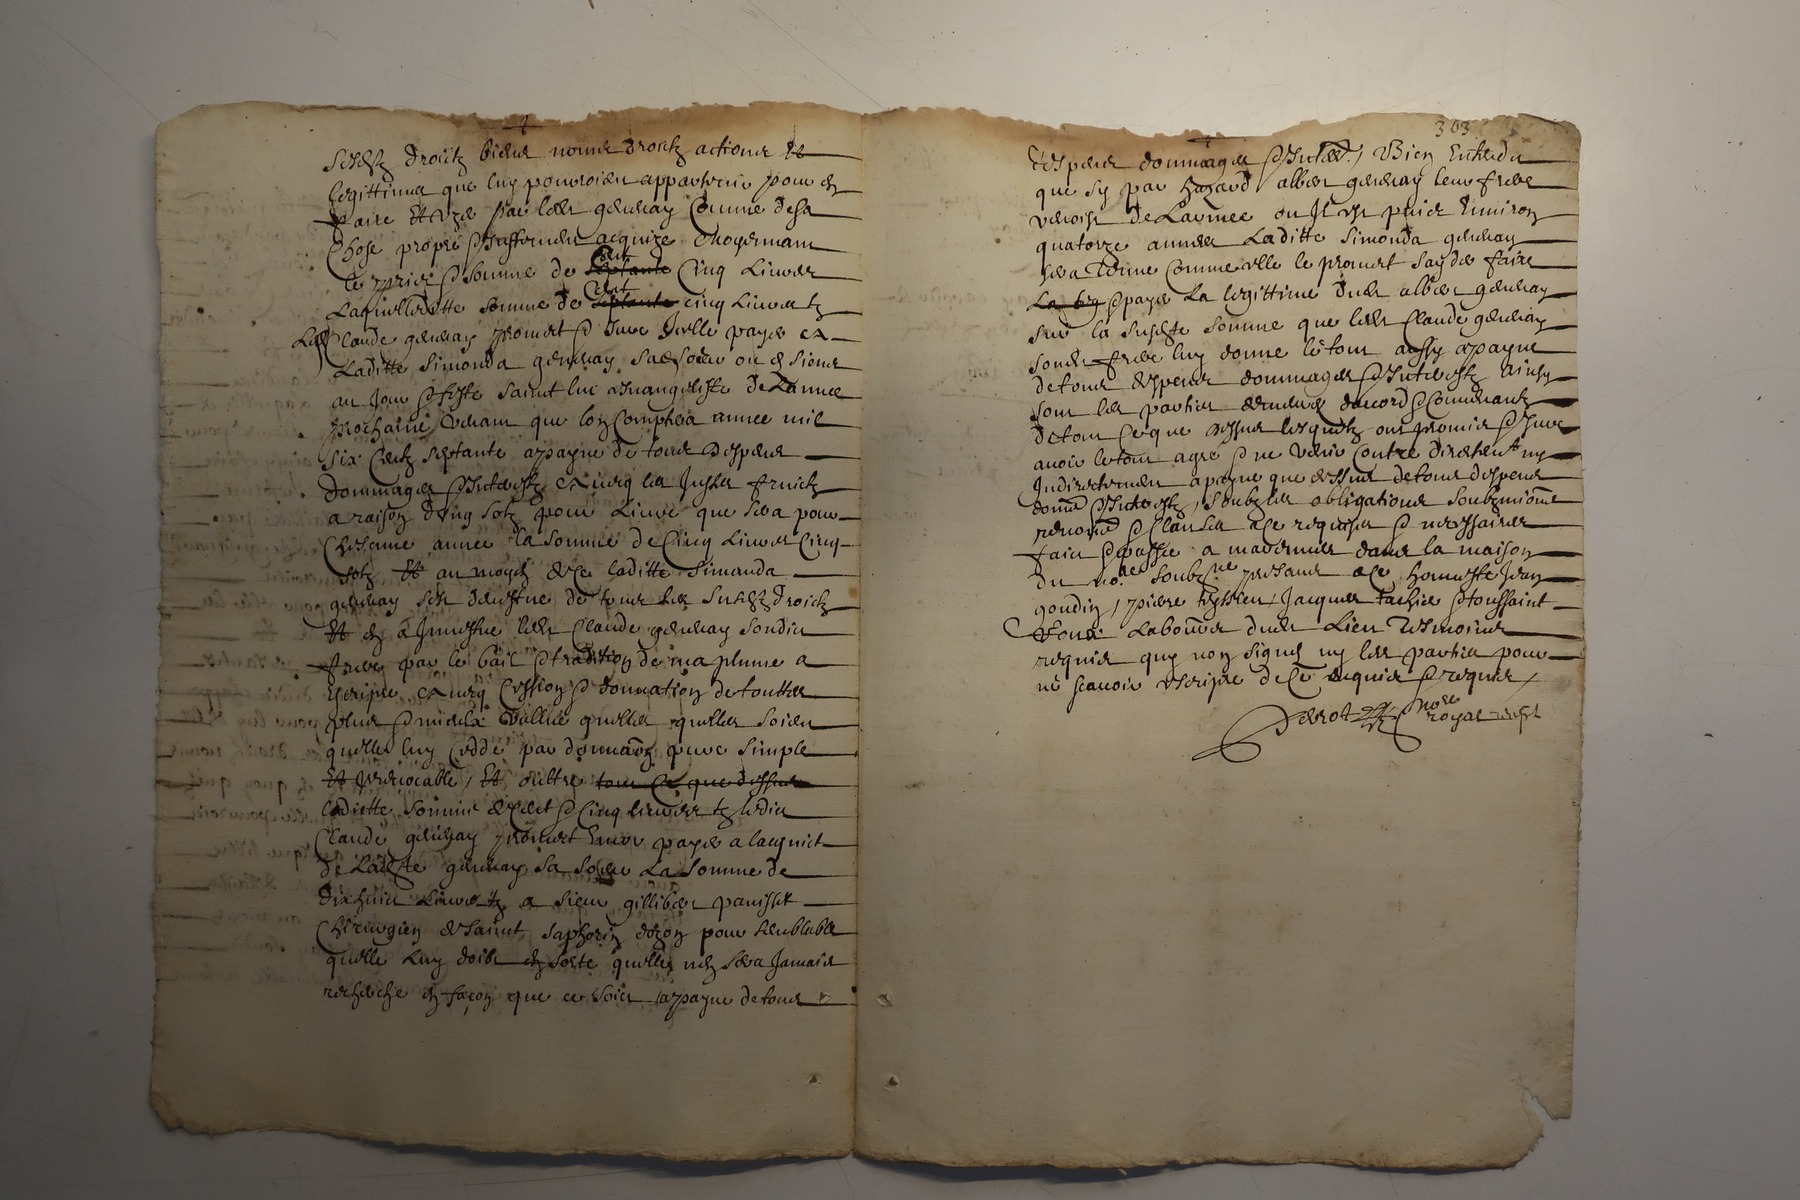 droictz biens noms droictz actions Et
legittimes que luy pourroient appartenir pour en
faire Et uzer par led. gerenay Comme de sa
Chose propre acquize moyennant
le prix & somme de cent septante Cinq Livres
Laquelle ditte somme de cent septante cinq Livres tz
Led. Claude gerenay promect & payer a
Laditte Simonda gerenay sa soeur ou es siens
au Jour & feste saint luc esvangeliste de Lannee
prochaine venant que lon Comptera annee mil
six Centz septante a payne de tous despens
dommages & Interestz avecq les Justes fruictz
a raison dung solz pour Livre que sera pour
Chescune annee la somme de Cinq Livres Cinq
solz Et au moyen de ce laditte Simonda
gerenay sest desvestue de tous les susd. droictz
Et en a Investue led. Claude gerenay sondict
frere par le bail & tradition de ma plume a
escripre avecq Cession & donnation de touttes
plus & mieulx vallue quelles quelles soient
quelle luy cedde par donnaon pure simple
Et Irrevocable, Et oultre tout Ce que dessus
laditte somme de Cent & Cinq livres tz ledict
Claude gerenay promect payer a lacquict
de Laditte gerenay sa soeur La somme de
dixhuict Livres tz a sieur gillibert panisset
Chirurgien de saint saphorin dozon pour semblable
quelle luy doibt en sorte quelle nen sera Jamais
recherche en facon que ce soict a payne de tous
303
despens dommages & Interestz / Bien Entendu
que sy par hazard albert gerenay leur frere
venoist de Larmee ou Il est puis Environ
quatorze annees Laditte Simonda gerenay
sera tenue Comme elle le promect faire
La big & payer La legittime dud. albert gerenay
sur la susditte somme que led. Claude gerenay
sond. frere luy donne le tout aussy a payne
de tous despens dommages & Interestz Ainsy
sont les parties demeures daccord & Comvenants
de tout Ce que dessus lesquelz ont promis &
avoir le tout agre & ne venir Contre directemt ny
Indirectement a payne que dessus de tous despens
domes & Interestz, soubz les obligations soubzmions
renoons & Clauses a Ce requises & necessaires
faict & passe a marennes dans la maison
du nore soubzne presant a Ce honneste Jean
goudin, pierre Jacques & toussaint
Laboureur dud. Lieu tesmoins
requis quy non signes ny led. parties pour
ne scavoir escripre de Ce enquis & requis /
perrot nore royal